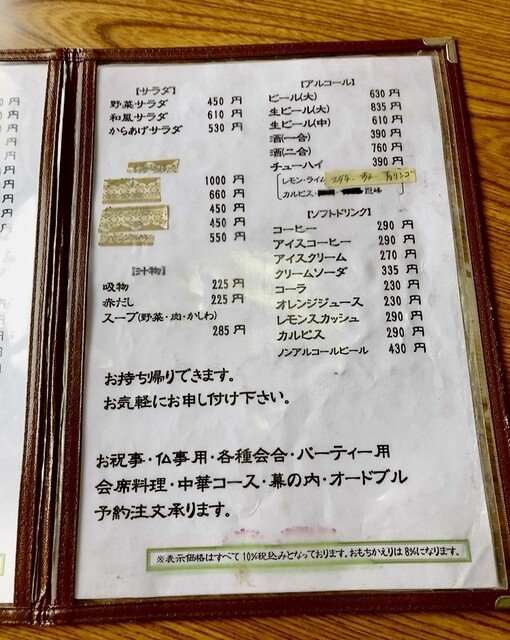 【サラダ】
野菜サラダ 450 円
和風サラダ 610 円
からあげサラダ 530 円
1000 円
660 円
450 円
450 円
550 円
【汁物】
吸物 225 円
赤だし 225 円
スープ(野菜・肉・かしわ)
285 円
【アルコール】
ビール(大) 630 円
生ビール(大) 835 円
生ビール(中) 610 円
酒(一合) 390 円
酒(二合) 760 円
チューハイ 390 円
レモン・ライム
カルピス・ 巨峰
【ソフトドリンク】
コーヒー 290 円
アイスコーヒー 290 円
アイスクリーム 270 円
クリームソーダ 335 円
コーラ 230 円
オレンジジュース 230 円
レモンスカッシュ 290 円
カルピス 290 円
ノンアルコールビール 430 円
お持ち帰りできます。
お気軽にお申し付け下さい。
お祝事・仏事用・各種会合・パーティー用
会席料理・中華コース・幕の内・オードブル
予約注文承ります。
※表示価格はすべて10%税込みとなっております。おもちかえりは8%になります。